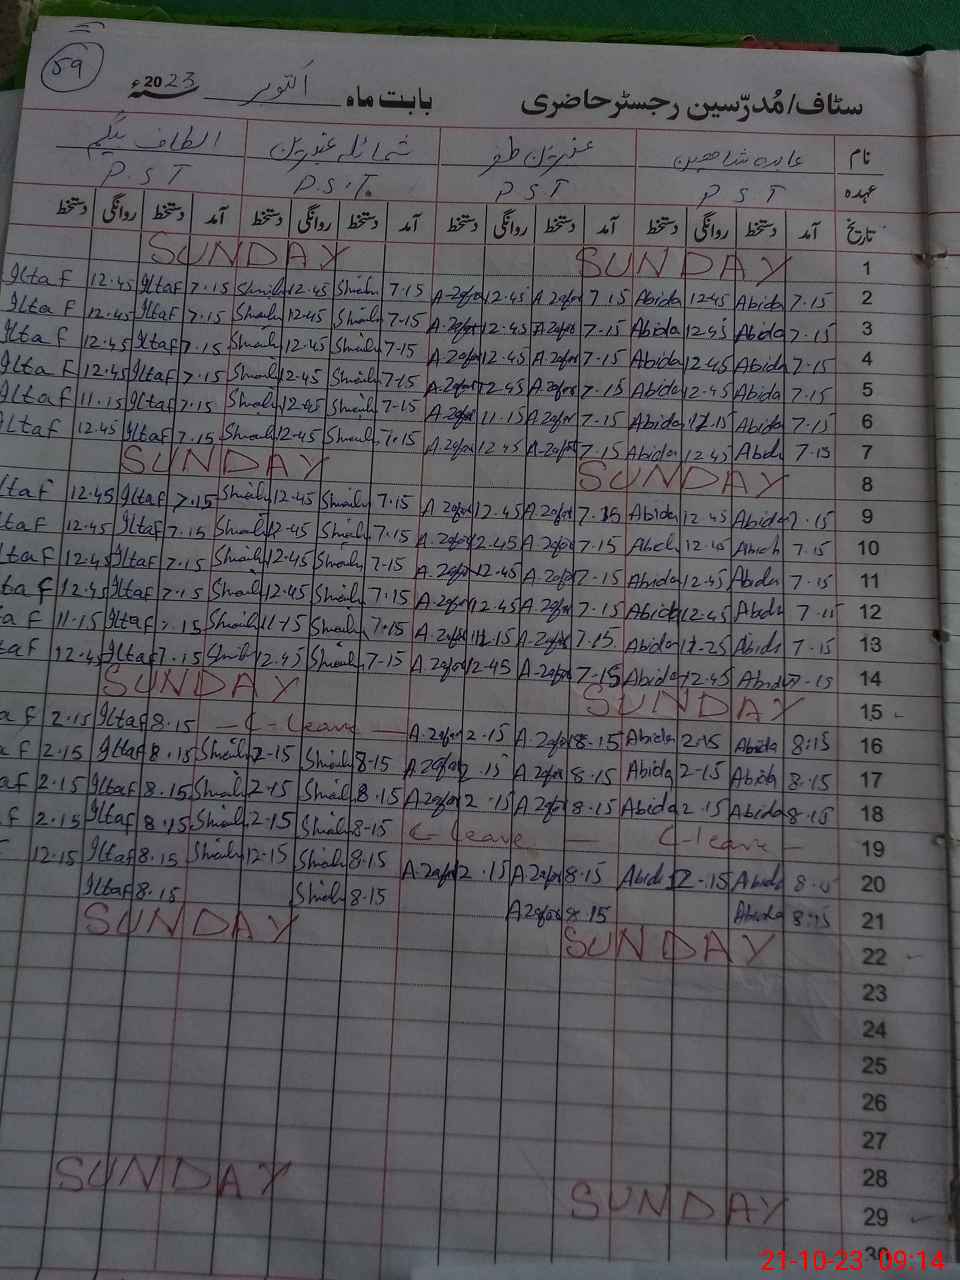 ۵۹
سٹاف/مُدرّسین رجسٹر حاضری بابت ماہ اکتوبر 2023ء
نام عابدہ شاھین عنبرین ظفر شمائلہ عنبرین الطاف بیگم
عہدہ P S T P S T P.S.T. P.S T
تاریخ آمد دستخط روانگی دستخط آمد دستخط روانگی دستخط آمد دستخط روانگی دستخط آمد دستخط روانگی دستخط
SUNDAY SUNDAY 1
Iltaf 12.45 Iltaf 7.15 12.45 7.15 A.Zafar 12.45 A.Zafar 7.15 Abida 12.45 Abida 7.15 2
Iltaf 12.45 Iltaf 7.15 12.45 7.15 A.Zafar 12.45 A.Zafar 7.15 Abida 12.45 Abida 7.15 3
Iltaf 12.45 Iltaf 7.15 12.45 7.15 A.Zafar 12.45 A.Zafar 7.15 Abida 12.45 Abida 7.15 4
Iltaf 12.45 Iltaf 7.15 12.45 7.15 A.Zafar 12.45 A.Zafar 7.15 Abida 12.45 Abida 7.15 5
Iltaf 11.15 Iltaf 7.15 12.45 7.15 A.Zafar 11.15 A.Zafar 7.15 Abida 11.15 Abida 7.15 6
Iltaf 12.45 Iltaf 7.15 12.45 7.15 A.Zafar 12.45 A.Zafar 7.15 Abida 12.45 Abida 7.15 7
SUNDAY SUNDAY 8
ltaf 12.45 Iltaf 7.15 12.45 7.15 A.Zafar 12.45 A.Zafar 7.15 Abida 12.45 Abida 7.15 9
ltaf 12.45 Iltaf 7.15 12.45 7.15 A.Zafar 12.45 A.Zafar 7.15 12.45 7.15 10
ltaf 12.45 Iltaf 7.15 12.45 7.15 A.Zafar 12.45 A.Zafar 7.15 Abida 12.45 Abida 7.15 11
taf 12.45 Iltaf 7.15 12.45 7.15 A.Zafar 12.45 A.Zafar 7.15 Abida 12.45 Abida 7.15 12
af 11.15 Iltaf 7.15 11.15 7.15 A.Zafar 11.15 A.Zafar 7.15 Abida 11.25 Abida 7.15 13
taf 12.45 Iltaf 7.15 12.45 7.15 A.Zafar 12.45 A.Zafar 7.15 Abida 12.45 Abida 7.15 14
SUNDAY SUNDAY 15
af 2.15 Iltaf 8.15 — C-leave — A.Zafar 2.15 A.Zafar 8.15 Abida 2.15 Abida 8:15 16
af 2.15 Iltaf 8.15 2.15 8.15 A.Zafar 2.15 A.Zafar 8.15 Abida 2.15 Abida 8.15 17
af 2.15 Iltaf 8.15 2.15 8.15 A.Zafar 2.15 A.Zafar 8.15 Abida 2.15 Abida 8.15 18
f 2.15 Iltaf 8.15 2.15 8.15 C-leave — C-leave — 19
12.15 Iltaf 8.15 12.15 8.15 A.Zafar 2.15 A.Zafar 8.15 Abida 12.15 Abida 8.15 20
Iltaf 8.15 8.15 A.Zafar 8.15 Abida 8:15 21
SUNDAY SUNDAY 22
23
24
25
26
27
28
SUNDAY SUNDAY 29
30
21-10-23 09:14